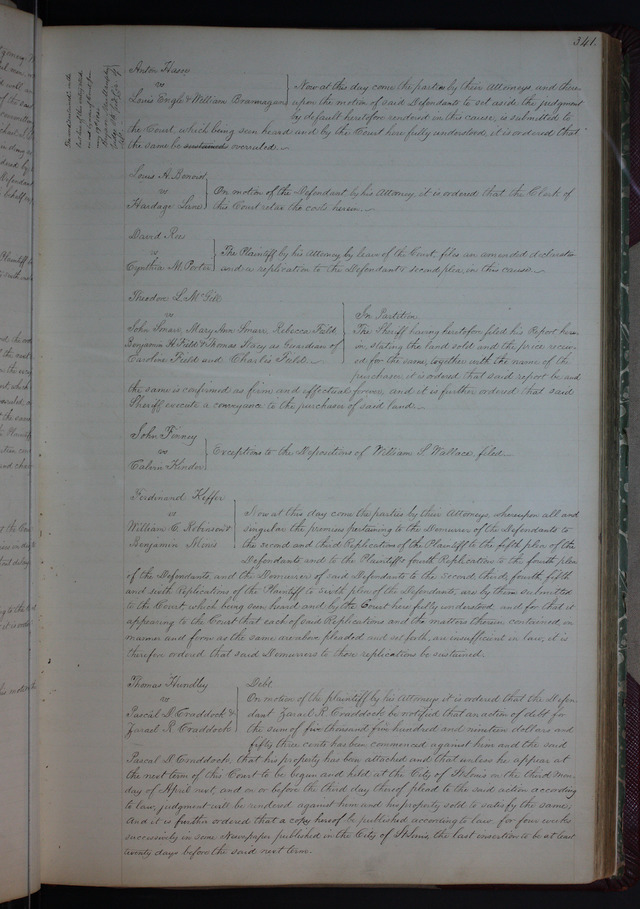 341.
Anton Hasey
vs
Louis Engle & William Brannagan
Now at this day come the parties by their Attorneys and there
upon the motion of said Defendants to set aside the judgment
by default heretofore rendered in this cause, is submitted to
the Court, which being seen heard and by the Court here fully understood, it is ordered that
the same be sustained overruled.
Louis A. Benoist
vs
Hardage Lane
On motion of the Defendant, by his Attorney, it is ordered that the Clerk of
this Court retax the costs herein.
David Rees
vs
Cynthia M. Porter
The Plaintiff by his Attorney by leave of the Court files an amended declaration
and a replication to the Defendants second plea in this cause.
Theodore L. McGill
vs
John Smarr, Mary Ann Smarr, Rebecca Field
Benjamin H. Field & Thomas Stacy as Guardian of
Caroline Field and Charles Field.
In Partition
The Sheriff having heretofore filed his Report here-
in, stating the land sold and the price receiv-
ed for the same, together with the name of the
purchaser, it is ordered that said report be and
the same is confirmed as firm and effectual forever, and it is further ordered that said
Sheriff execute a conveyance to the purchaser of said land.
John Finney
vs
Calvin Kinder
Exceptions to the Depositions of William S. Wallace, filed.
Ferdinand Keffer
vs
William C. Robinson &
Benjamin Mires
Now at this day come the parties by their Attorneys, whereupon all and
singular the premises pertaining to the Demurrer of the Defendants to
the second and third Replication of the Plaintiff to the fifth plea of the
Defendants and to the Plaintiffs fourth Replication to the fourth plea
of the Defendants, and the Demurrer of said Defendants to the second, third, fourth, fifth
and sixth Replications of the Plaintiff to sixth plea of the Defendants, are by them submitted
to the Court which being seen heard and by the Court here fully understood, and for that it
appearing to the Court that each of said Replications and the matters therein contained, in
manner and form as the same are above pleaded and set forth, are insufficient in law, it is
therefore ordered that said Demurrers to those replications be sustained.
Thomas Hundley
vs
Pascal D. Craddock &
Zarael R. Craddock
Debt.
On motion of the plaintiff by his Attorneys it is ordered that the Defen-
dant Zarael R. Craddock be notified that an action of debt for
the sum of five thousand, five hundred and nineteen dollars and
fifty three cents has been commenced against him and the said
Pascal D. Craddock, that his property has been attached and that unless he appear at
the next term of this Court to be begun and held at the City of St Louis on the third mon-
day of April next, and on or before the third day thereof plead to the said action according
to law, judgment will be rendered against him and his property sold to satisfy the same;
And it is further ordered that a copy hereof be published, according to law, for four weeks
successively in some Newspaper published in the City of St Louis, the last insertion to be at least
twenty days before the said next term.